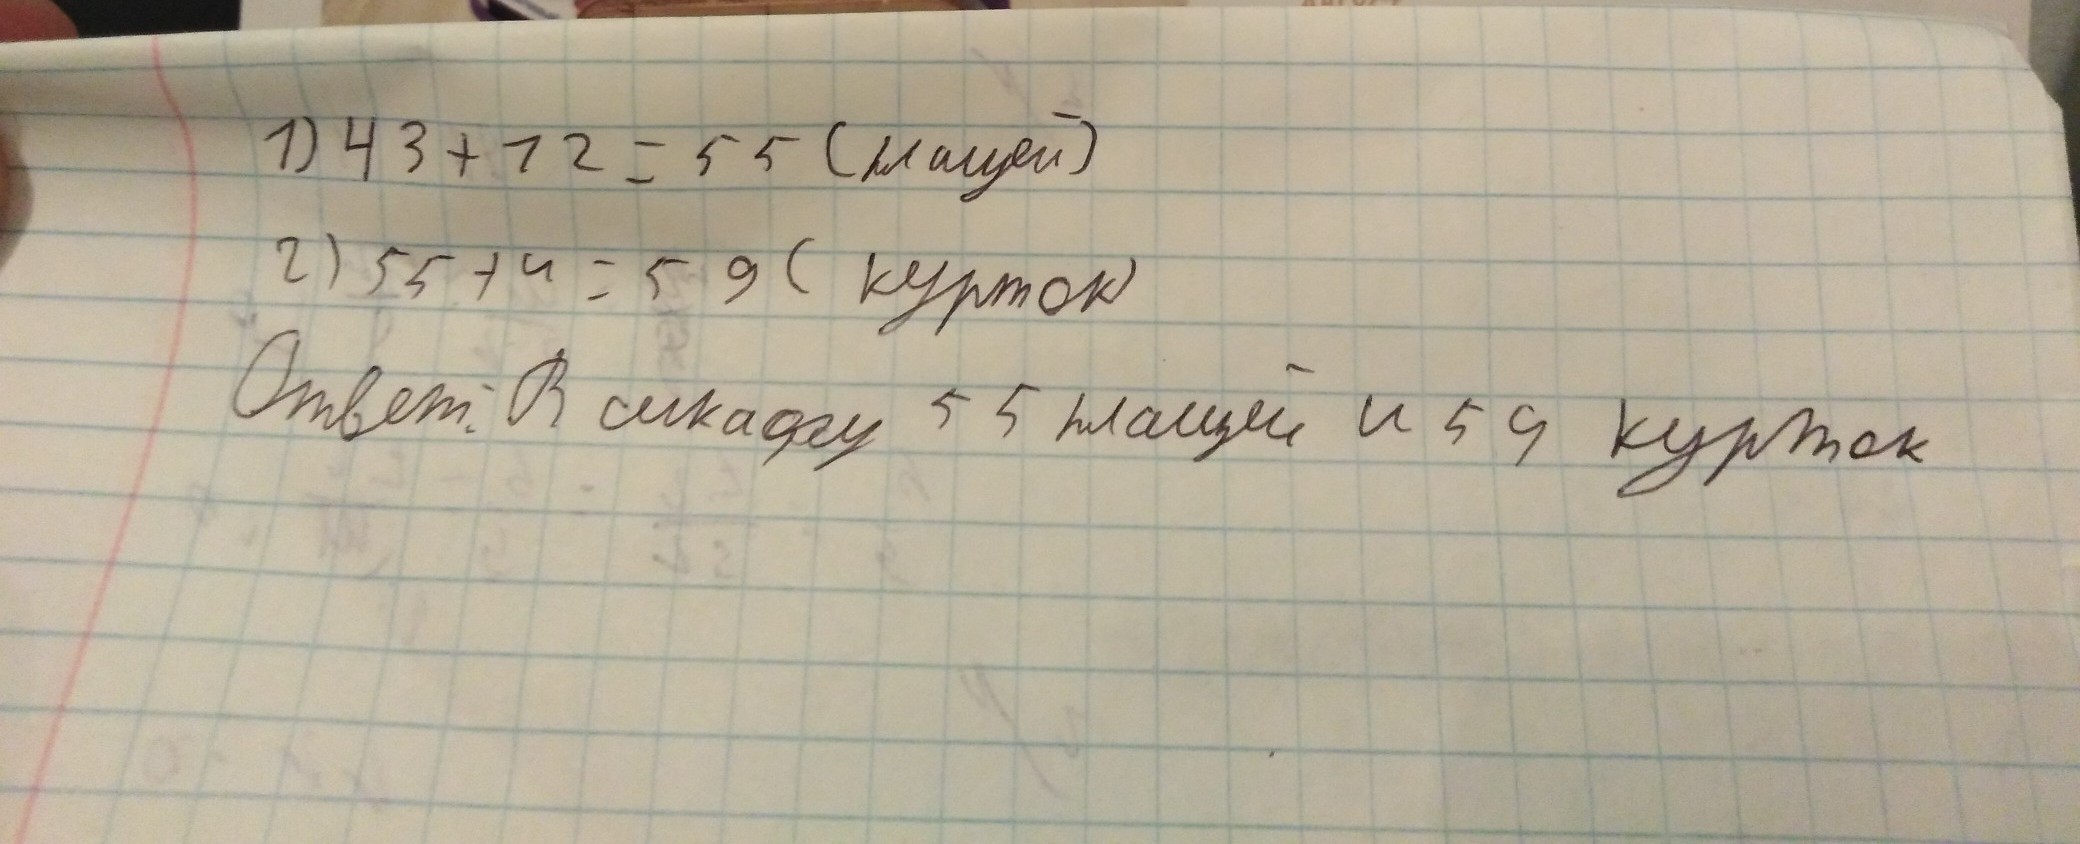 1) 43 + 12 = 55 (плащей)
2) 55 + 4 = 59 ( курток)
Ответ: В шкафу 55 плащей и 59 курток